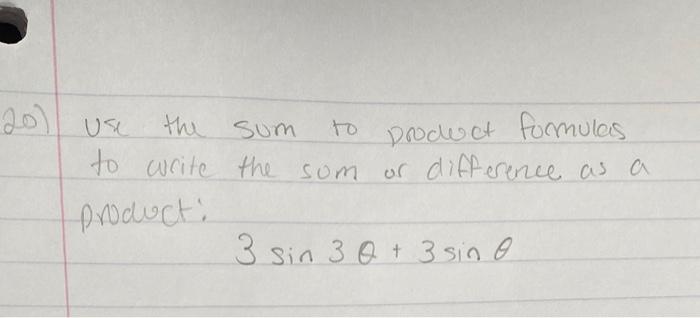 20) Use the sum to product formulas
to write the sum or difference as a
product:
3 sin 3θ + 3 sin θ